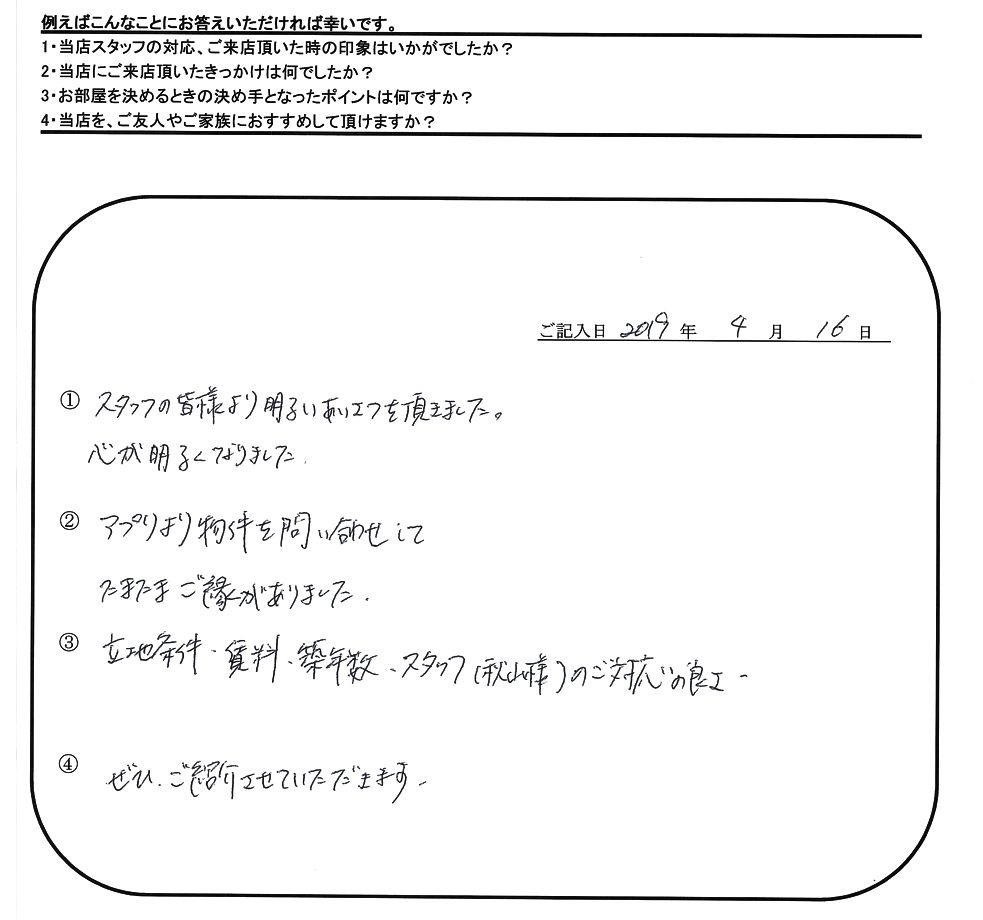 例えばこんなことにお答えいただければ幸いです。
1・当店スタッフの対応、ご来店頂いた時の印象はいかがでしたか？
2・当店にご来店頂いたきっかけは何でしたか？
3・お部屋を決めるときの決め手となったポイントは何ですか？
4・当店を、ご友人やご家族におすすめして頂けますか？
ご記入日 2019 年 4 月 16 日
① スタッフの皆様より明るいあいさつを頂きました。
心が明るくなりました.
② アプリより物件を問い合わせして
たまたまご縁がありました.
③ 立地条件、賃料、築年数、スタッフ(秋山様)のご対応の良さ
④ ぜひ、ご紹介させていただきます.